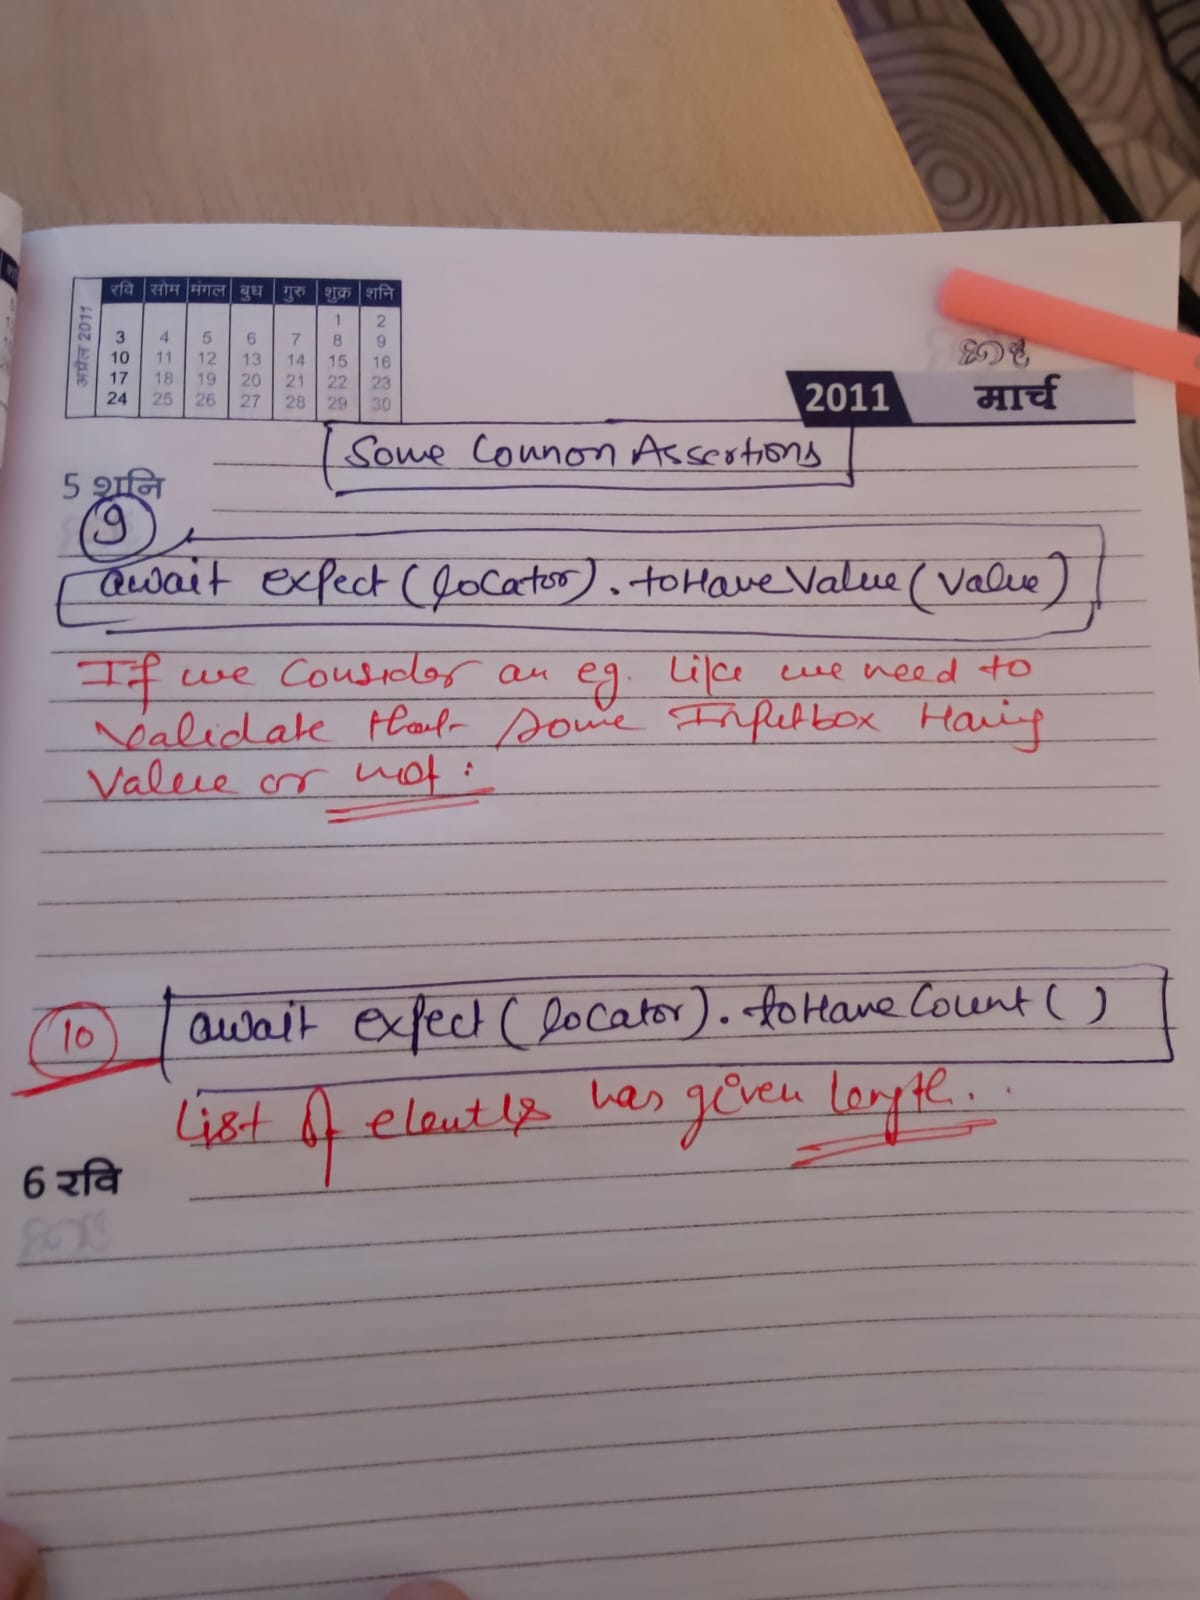 अप्रैल 2011
रवि सोम मंगल बुध गुरु शुक्र शनि
1 2
3 4 5 6 7 8 9
10 11 12 13 14 15 16
17 18 19 20 21 22 23
24 25 26 27 28 29 30
2011 मार्च
Some Connon Assertions
5 शनि
9
await expect (locator). toHaveValue (Value)
If we Consider an eg. like we need to
Validate that some Inputbox Having
Value or not :
10
await expect (locator). toHaveCount ( )
List of has given length.
6 रवि